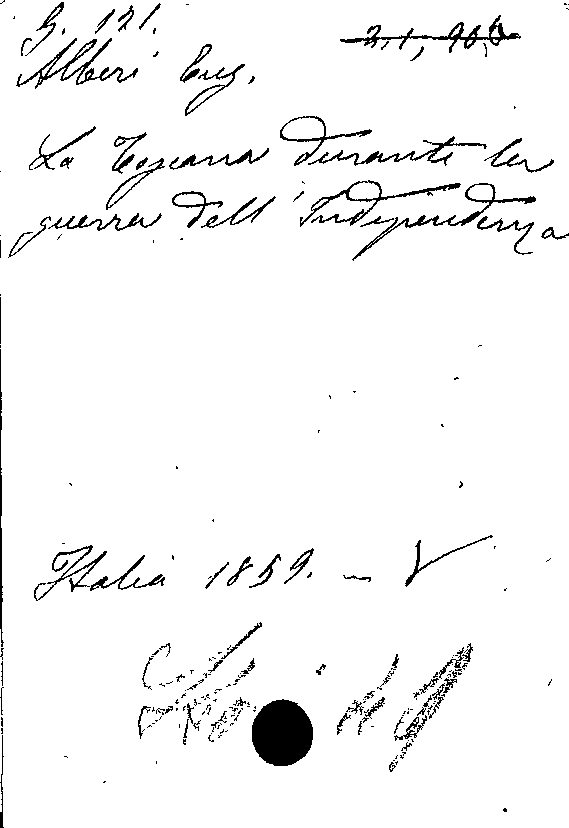 G. 121.
21,900
Alberi Eug.
La Toscana durante la
guerra dell'Indipendenza
Italia 1859. - V